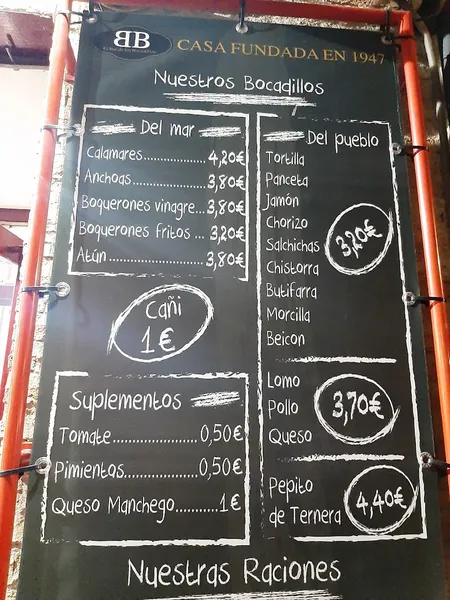 BB
CASA FUNDADA EN 1947
Nuestros Bocadillos
Del mar
Calamares..................... 4,20€
Anchoas........................3,80€
Boquerones vinagre...3,80€
Boquerones fritos ... 3,20€
Atún...............................3,80€
Cañi
1€
Suplementos
Tomate.......................0,50€
Pimientos....................0,50€
Queso Manchego...........1€
Del pueblo
Tortilla
Panceta
Jamón
Chorizo
Salchichas
Chistorra
Butifarra
Morcilla
Beicon
3,20€
Lomo
Pollo
Queso
3,70€
Pepito
de Ternera
4,40€
Nuestras Raciones